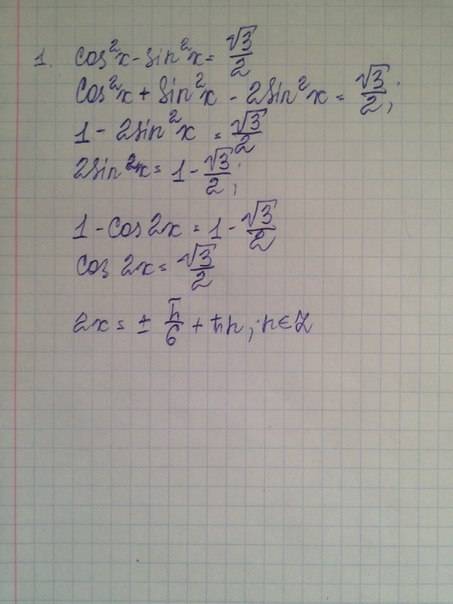 1. cos²x - sin²x = √3/2
cos²x + sin²x - 2sin²x = √3/2;
1 - 2sin²x = √3/2
2sin²x = 1 - √3/2;
1 - cos 2x = 1 - √3/2
cos 2x = √3/2
2x = ± π/6 + πn; n∈Z